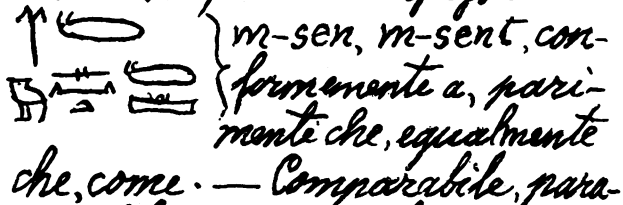 m-sen, m-sent, con-
formemente a, pari-
mente che, egualmente
che, come. — Comparabile, para-